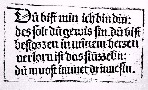 Du bist min ich bin din:
des solt du gewis sin. du bist
beslozzen in minem herzen
verlorn ist das sluzzelin:
du muost immer drinne sin.